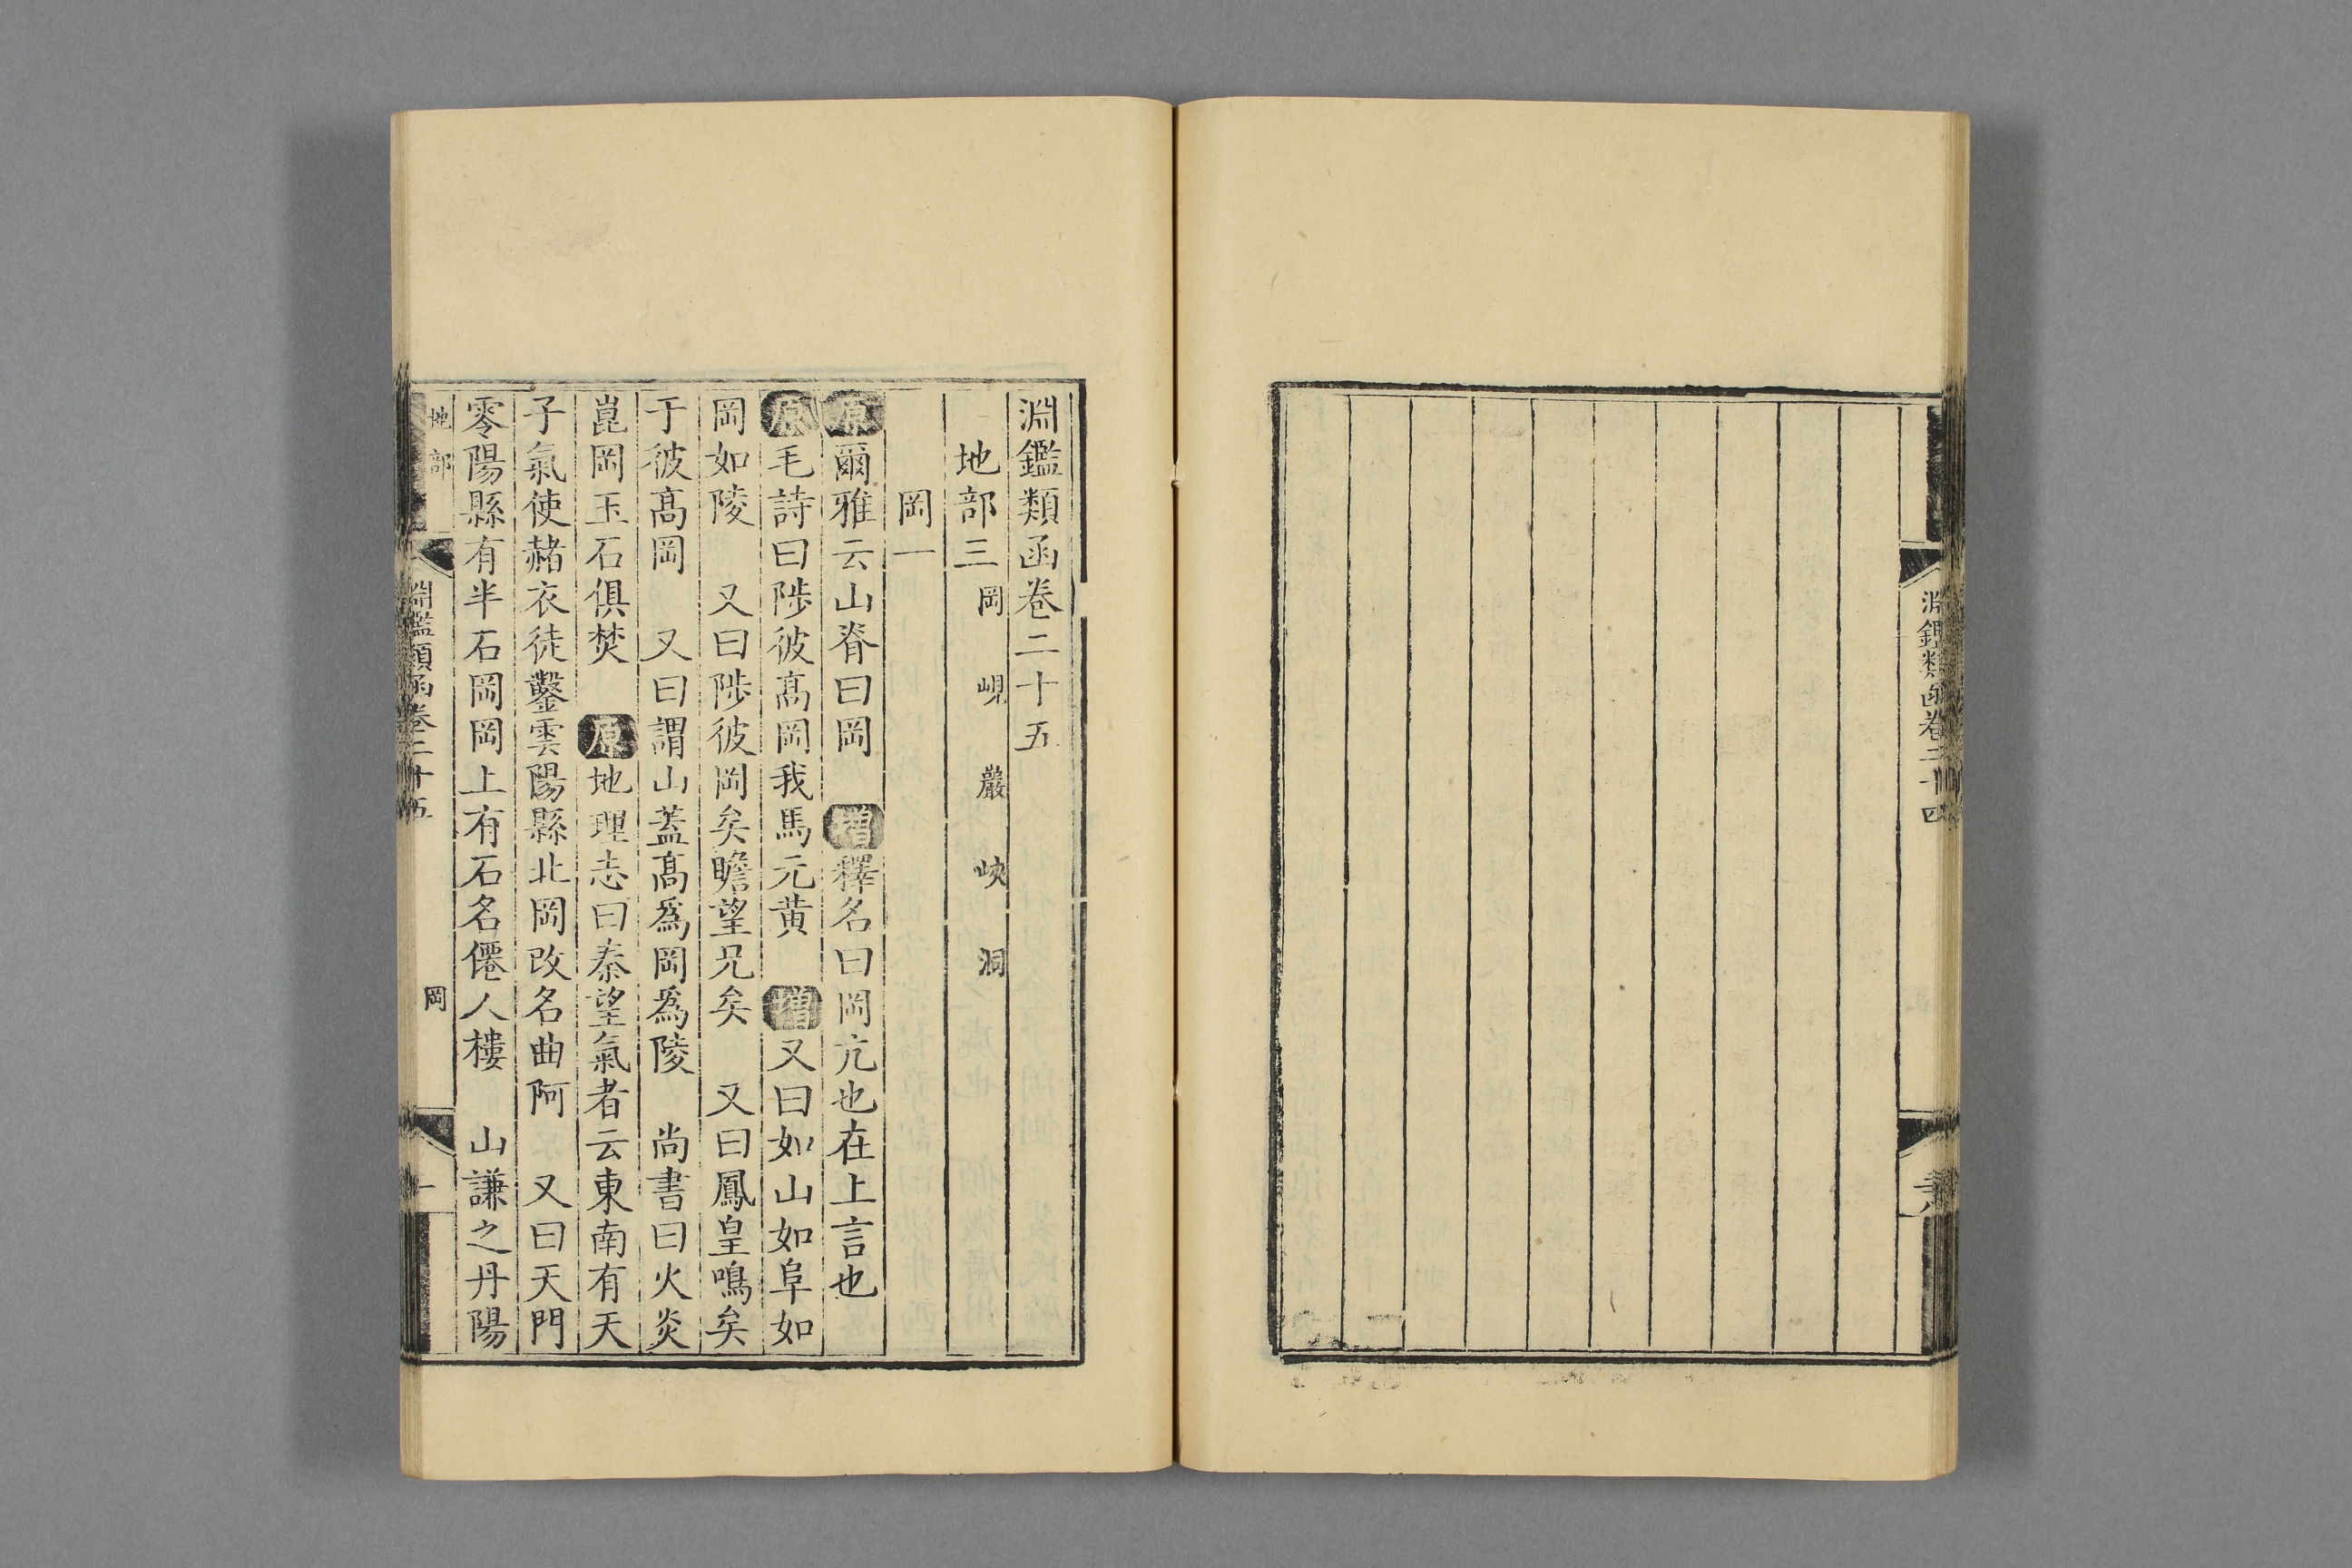 淵鑑類函卷二十四
淵鑑類函卷二十五
地部三 岡 峴 巖 峽 洞
岡一
原爾雅云山脊曰岡 增釋名曰岡亢也在上言也
原毛詩曰陟彼髙岡我馬元黄 增又曰如山如阜如
岡如陵 又曰陟彼岡矣瞻望兄矣 又曰鳳皇鳴矣
于彼髙岡 又曰謂山蓋髙爲岡爲陵 尚書曰火炎
崑岡玉石俱焚 原地理志曰秦望氣者云東南有天
子氣使赭衣徒鑿雲陽縣北岡改名曲阿 又曰天門
零陽縣有半石岡岡上有石名僊人樓 山謙之丹陽
地部 淵鑑類函卷二十五 岡 一